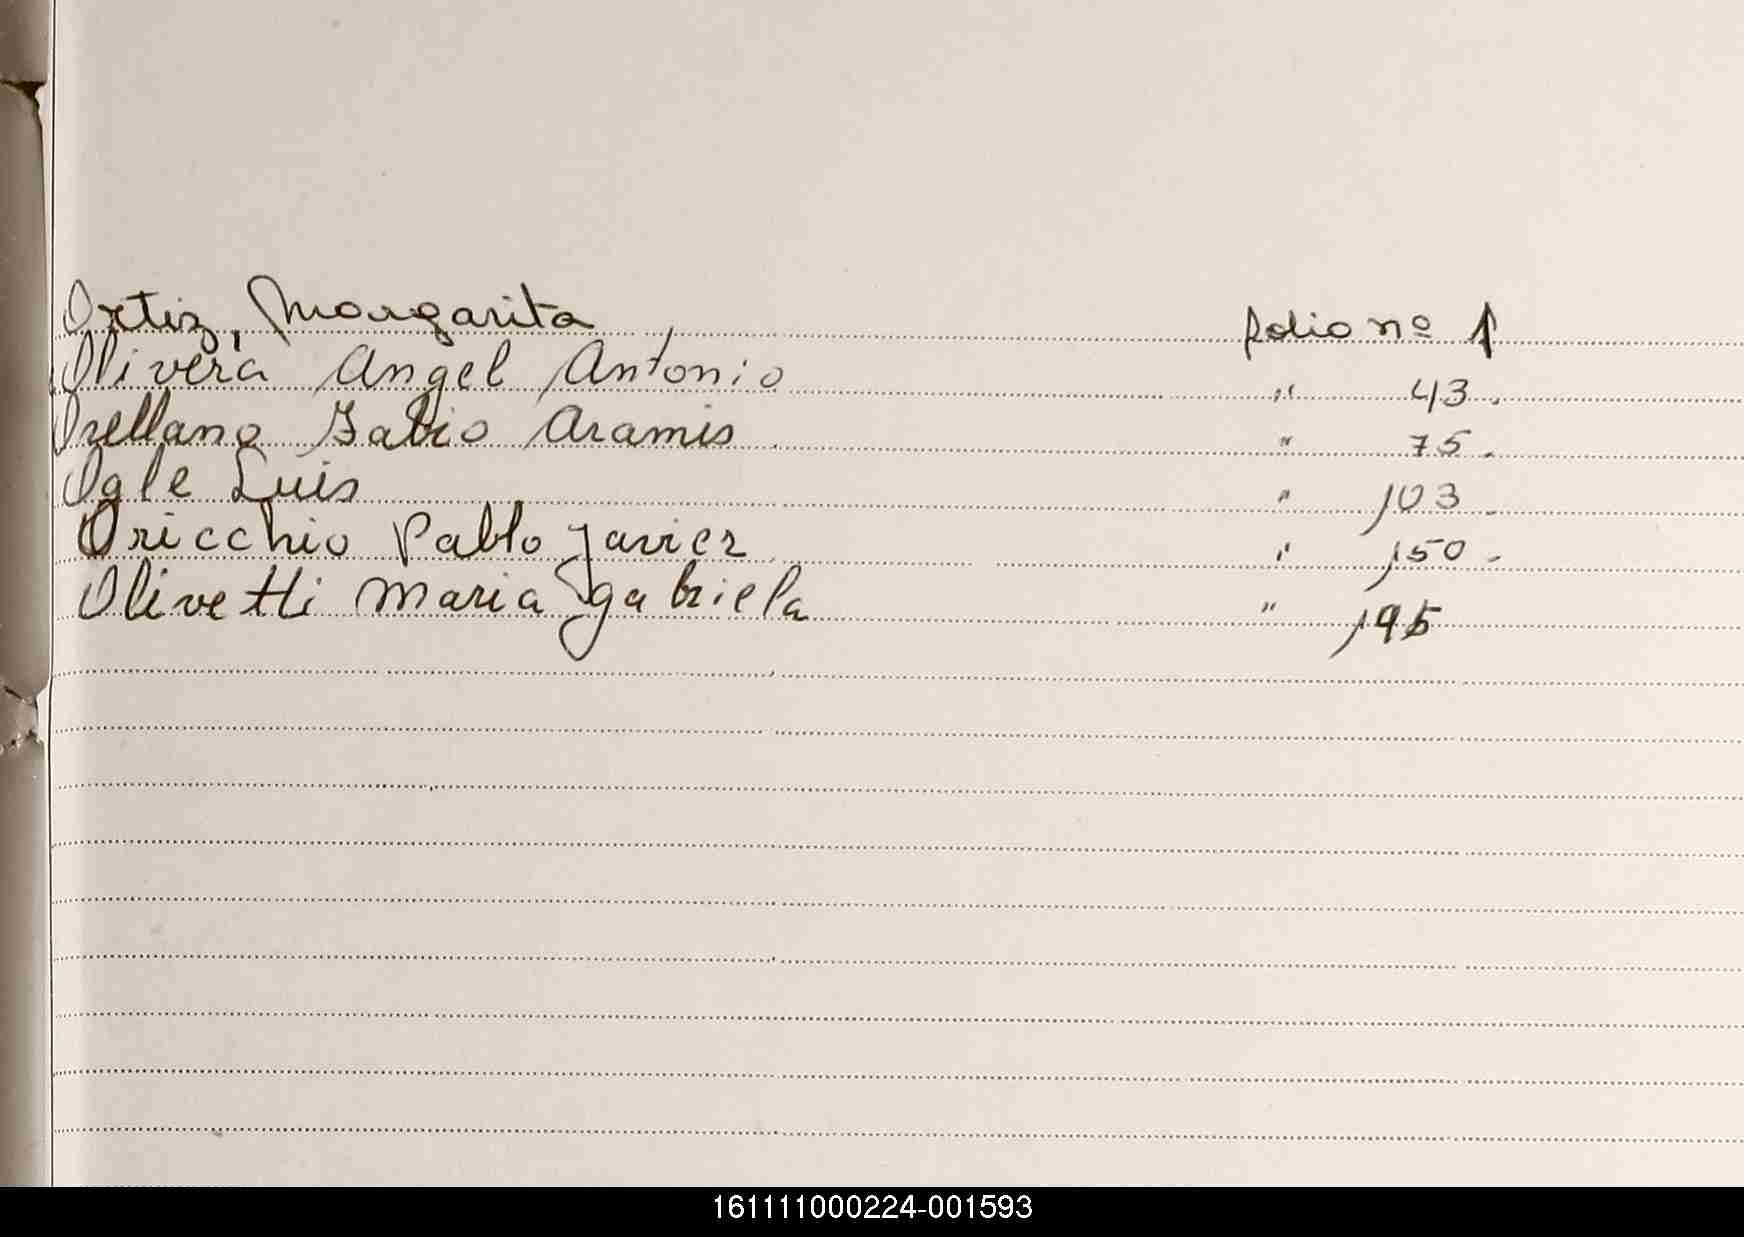 Ortiz, Margarita folio nº 1
Olivera Angel Antonio " 43.
Orellano Fabio Aramis " 75.
Ogle Luis " 103.
Oricchio Pablo Javier " 150.
Olivetti Maria Gabriela " 195
161111000224-001593